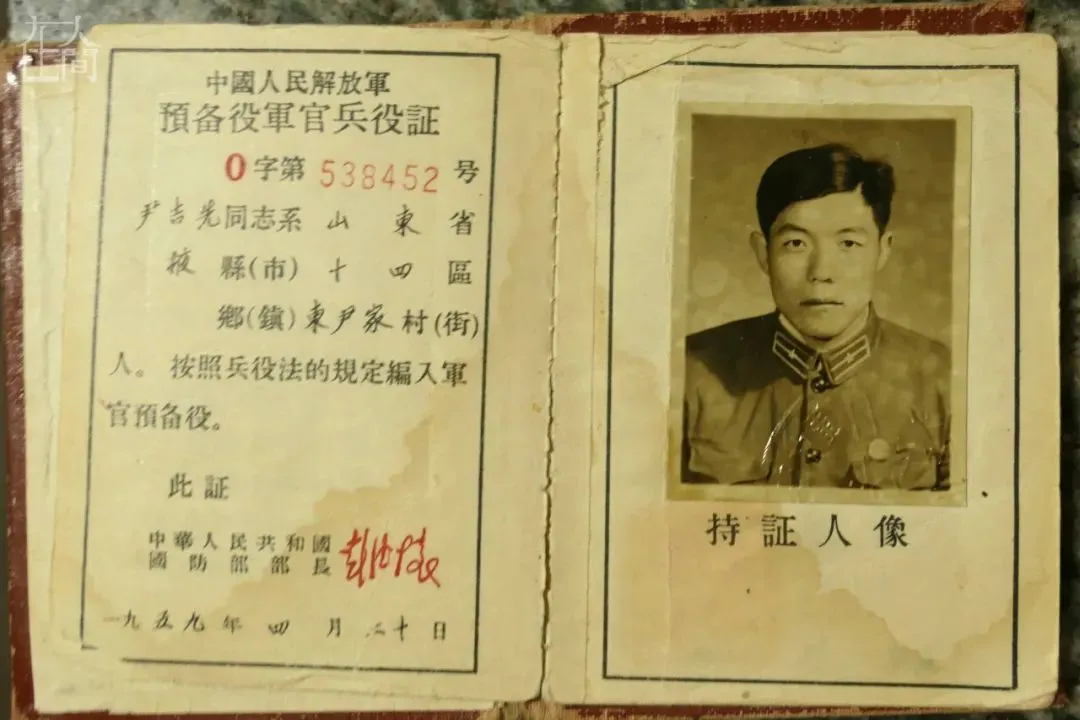 在人间
中國人民解放軍
預备役軍官兵役証
0字第 538452 号
尹吉先同志系 山 東 省
掖 縣(市) 十 四 區
鄉(鎮)東尹家村(街)
人。按照兵役法的規定編入軍
官預备役。
此証
中華人民共和國
國防部部長 彭德懷
一九五九年 四 月 二十日
持証人像